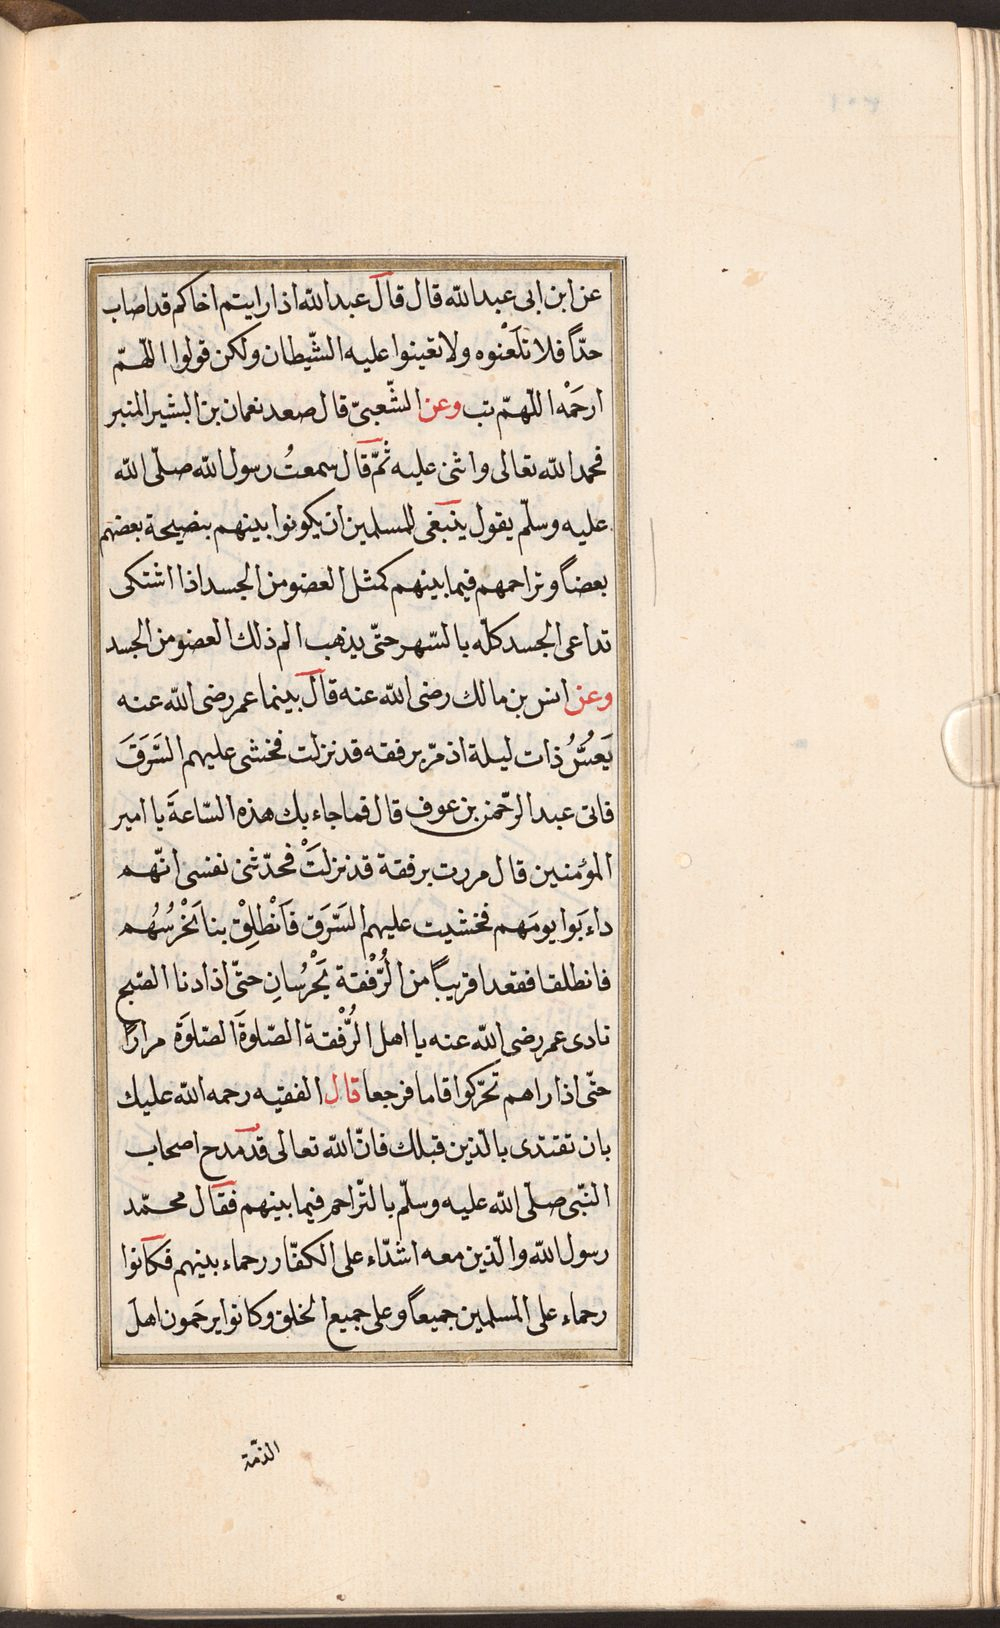 عن ابن ابى عبد الله قال قال عبد الله اذا رايتم اخاكم قد اصاب
حدّاً فلا تلعَنْوه ولا تعينوا عليه الشّيطان ولكن قولوا اللّهمّ
ارحَمْه اللّهمّ تب وعن الشّعبىّ قال صعد نعمان بن البشير المنبر
فحمد الله تعالى واثنى عليه ثُمّ قال سمعتُ رسول الله صلّى الله
عليه وسلّم يقول ينبغى للمسلمين ان يكونوا بينهم بنصيحة بعضهم
بعضاً وتراحمهم فيما بينهم كمثل العضو من الجسد اذا اشتكى
تداعى الجسد كلّه بالسّهر حتّى يذهب الم ذلك العضو من الجسد
وعن انس بن مالك رضى الله عنه قال بينما عمر رضى الله عنه
يَعُسُّ ذات ليلة اذ مرّ برفقه قد نزلت فخشى عليهم السَّرَقَ
فاتى عبد الرّحمن بن عوف قال فما جاء بك هذه السّاعةَ يا امير
المؤمنين قال مررت برفقة قد نزلَتْ فحدّثنى نفسى انّهم
داءبَوا يومَهم فخشيت عليهم السَّرَق فَانْطلِقْ بنا نَحْرُسُهُم
فانطلقا فقعدا قريباً من الرُّفْقة يَحْرُسانِ حتّى اذا دنا الصّبح
نادى عمر رضى الله عنه يا اهل الرُّفْقة الصّلوةَ الصّلوَة مراراً
حتّى اذا راهم تحرّكوا قاما فرجعا قال الفقيه رحمه الله عليك
بان تقتدى بالّذين قبلك فانّ الله تعالى قد مدح اصحاب
النّبّى صلّى الله عليه وسلّم بالتّراحم فيما بينهم فقال محمّد
رسول الله والّذين معه اشدّاء على الكفّار رحماء بينهم فكانوا
رحماء على المسلمين جميعاً وعلى جميع الخلق وكانوا يرحَمون اهلَ
الذمّة